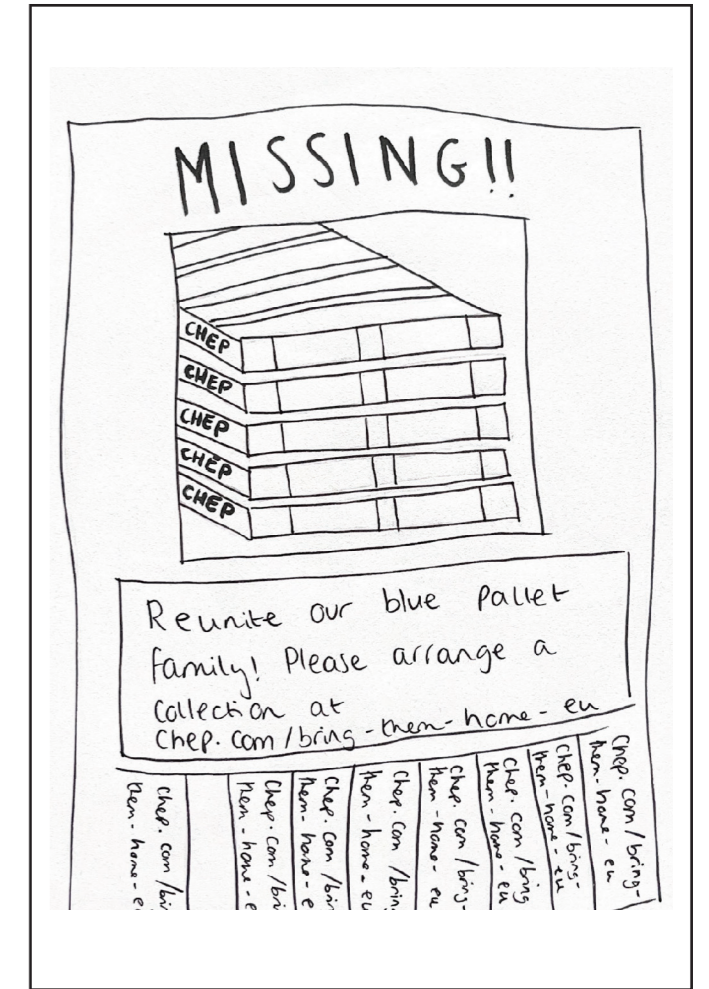 MISSING!!
CHEP
CHEP
CHEP
CHEP
CHEP
Reunite our blue pallet
family! Please arrange a
collection at
chep.com/bring-them-home-eu
Chep.com/bri
them-home-e
Chep.com/bri
them-home-e
Chep.com/bri
them-home-e
Chep.com/brin
them-home-eu
Chep.com/bring-
them-home-eu
Chep.com/bring
them-home-eu
Chep.com/bring-
them-home-eu
Chep.com/bring-
them-home-eu